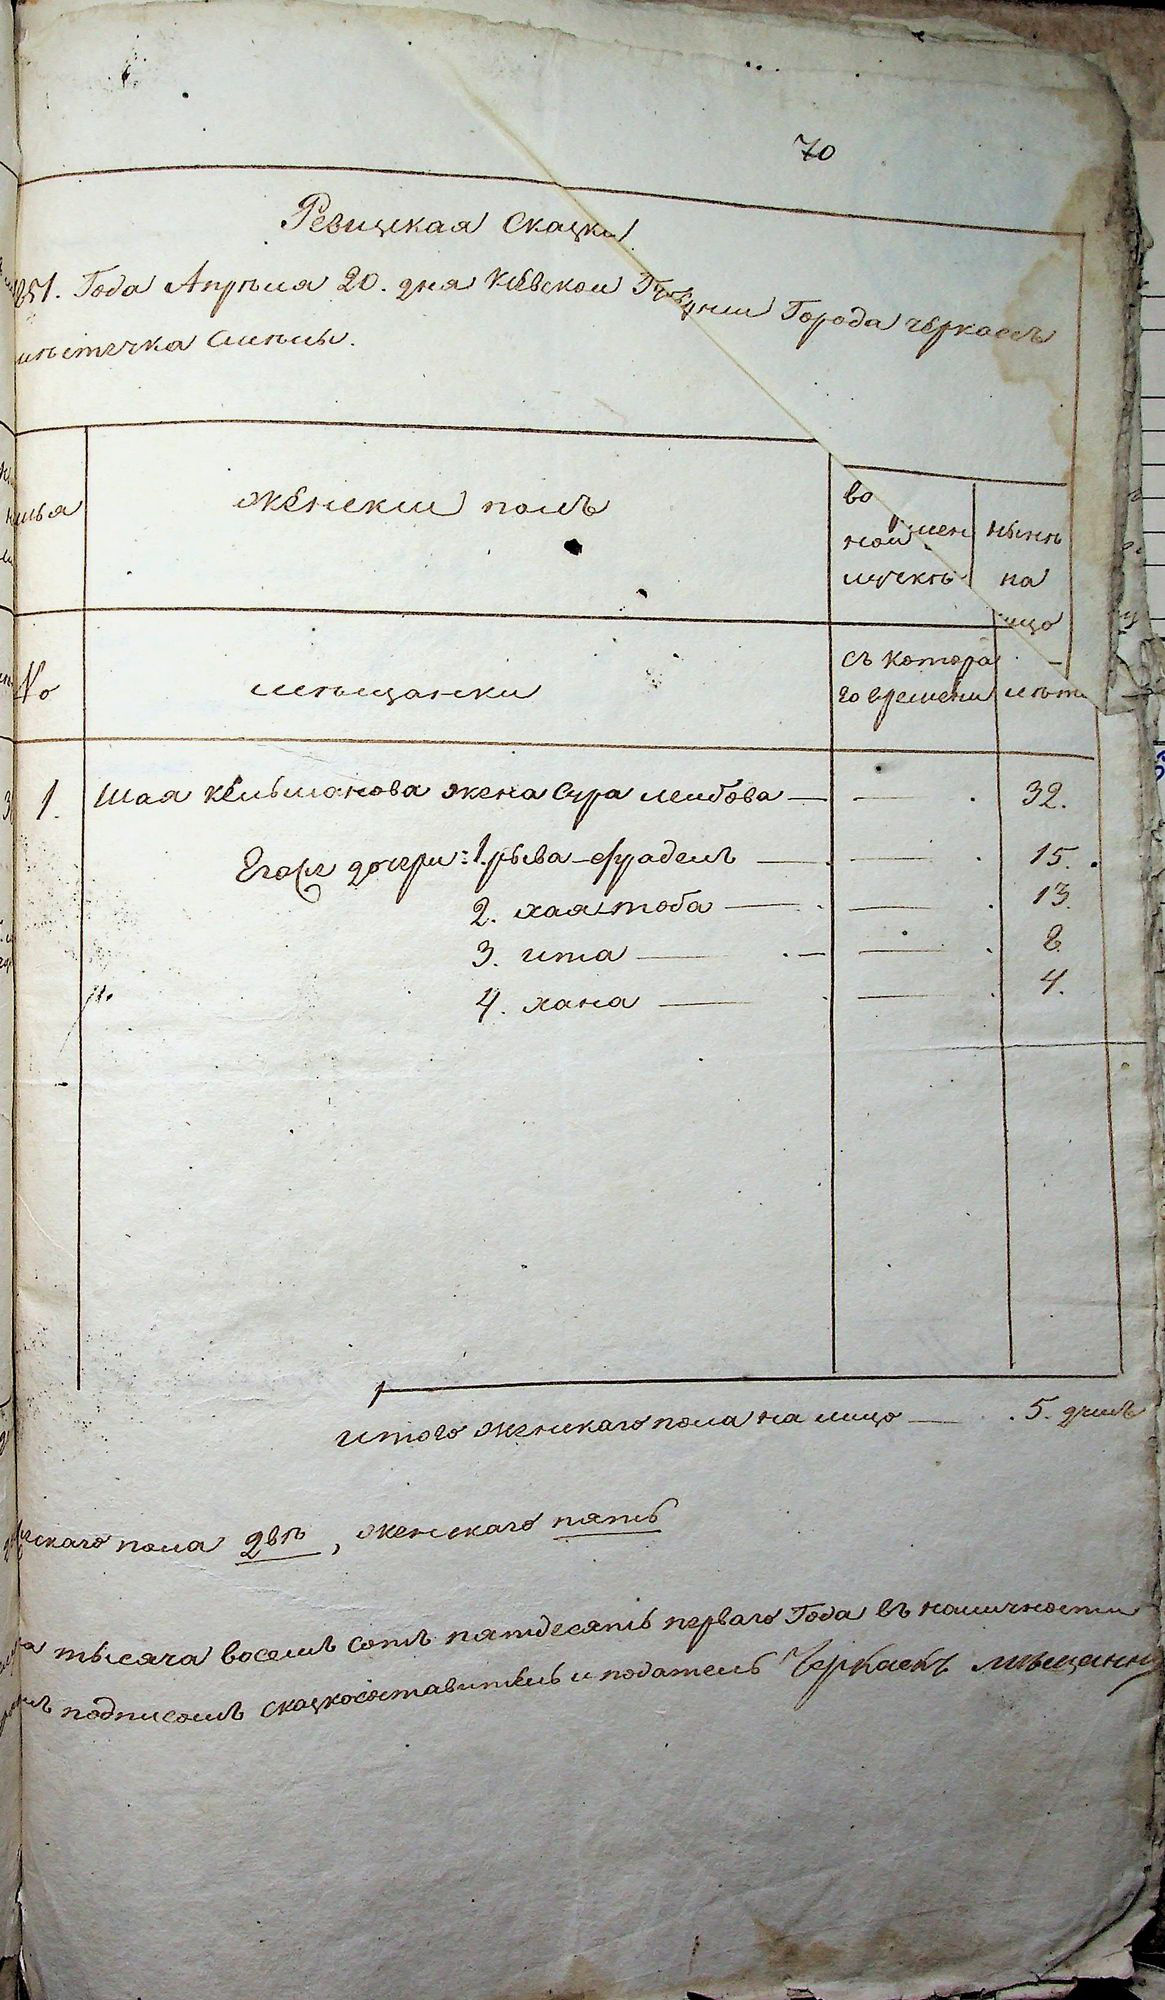 70
Ревицкая Скацки
851. Года Апреля 20. дня Киевской Губернии Города Черкасъ
местечка Смелы.
женски полъ
во
ной
нынѣ
на
лицо
№
мещанки
съ котора
го времени
лѣта
1. Шая Кельманова жена Сура лейбова — — 32.
Егоже дочери: 1. рыва-фрадель — — 15.
2. хая тоба — — 13.
3. ита — — 8.
4. хана — — 4.
итого женскаго пола на лицо — 5. душъ
скаго пола двѣ, женскаго пять
тысяча восемъ сотъ пятдесятъ перваго Года въ наличности
подписомъ скацкосоставитель и податель Черкаскъ мѣщанин